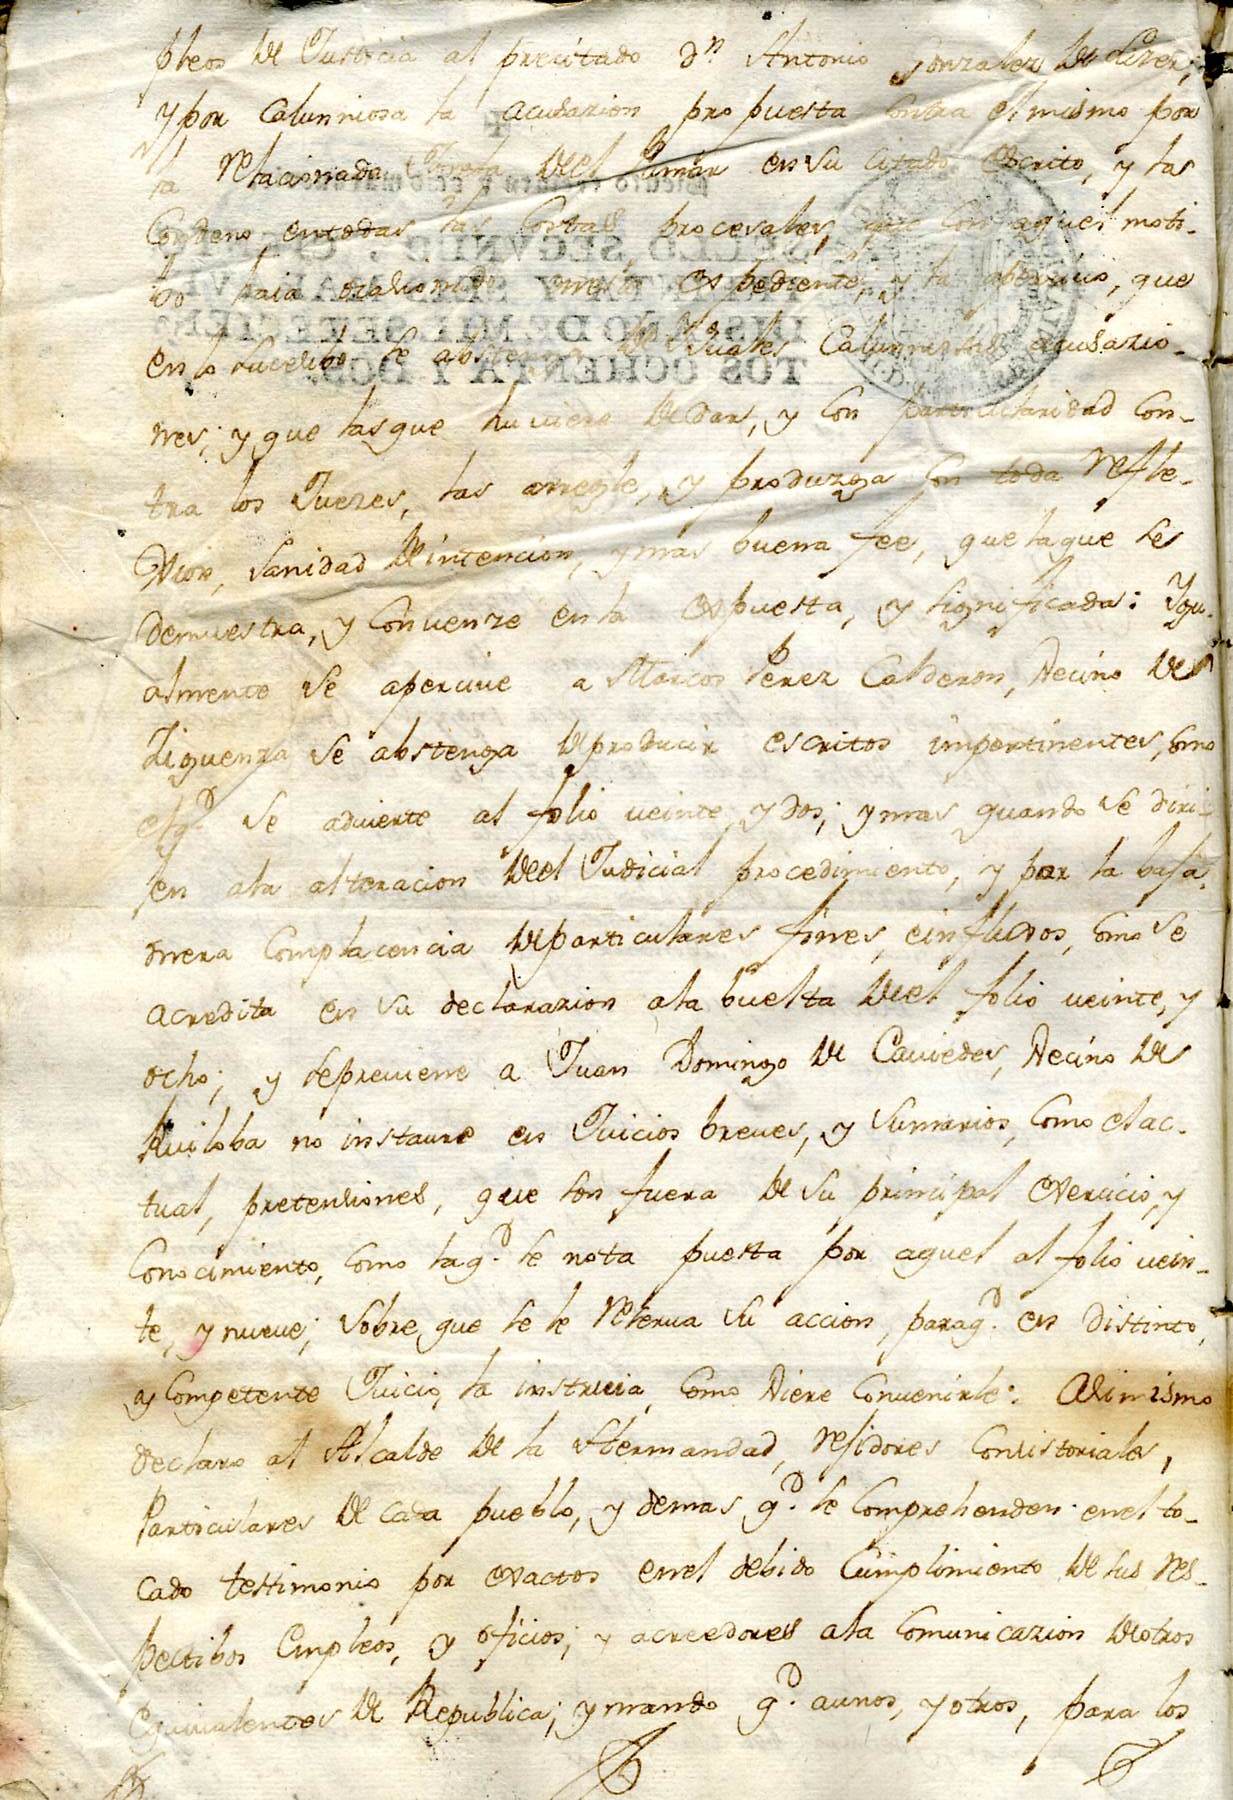 pleos de Justicia al precitado Dn Antonio Gonzalez de
y por calunniosa la acusazion propuesta contra el mismo por
la relacionada en su citado escrito, y las
condeno en todas las costas procesales, que con aquel moti-
bo haia ocasionado en este expediente, y la apercivo, que
en lo sucesibo se abstenga de iguales calunniosas acusazio-
nes; y que las que huviere de dar, y con particularidad con-
tra los Juezes, las arregle, y produzga con toda refle-
xion, sanidad de intencion, y mas buena fee, que la que se
demuestra, y convenze en la expuesta, y significada: Ygu-
almente se apercive a Marcos Perez Calderon, vecino de
Ziguenza se abstenga de producir escritos impertinentes, como
el q.e se advierte al folio veinte, y dos; y mas quando se diri-
en ala alteracion del Judicial procedimiento, y por la
mera complacencia de particulares fines, e influxos, como se
acredita en su declarazion ala buelta del folio veinte, y
ocho; y se previene a Juan Domingo de Caviedes, vecino de
Ruiloba no instaure en Juicios breves, y sumarios, como el ac-
tual, pretensiones, que son fuera de su principal exercicio, y
conocimiento, como la q.e se nota puesta por aquel al folio vein-
te, y nueve; sobre que se le reserva su accion, para q.e en distinto,
y competente Juicio, la instruia, como viere convenirle: Asimismo
declaro al Alcalde de la Hermandad, rejidores consistoriales,
Particulares de cada pueblo, y demas q.e se comprehenden en el to-
cado testimonio por exactos en el debido cumplimiento de sus res-
pectibos empleos, y oficios; y acreedores ala comunicazion de otros
equivalentes de Republica; y mando q.e a unos, y otros, para los